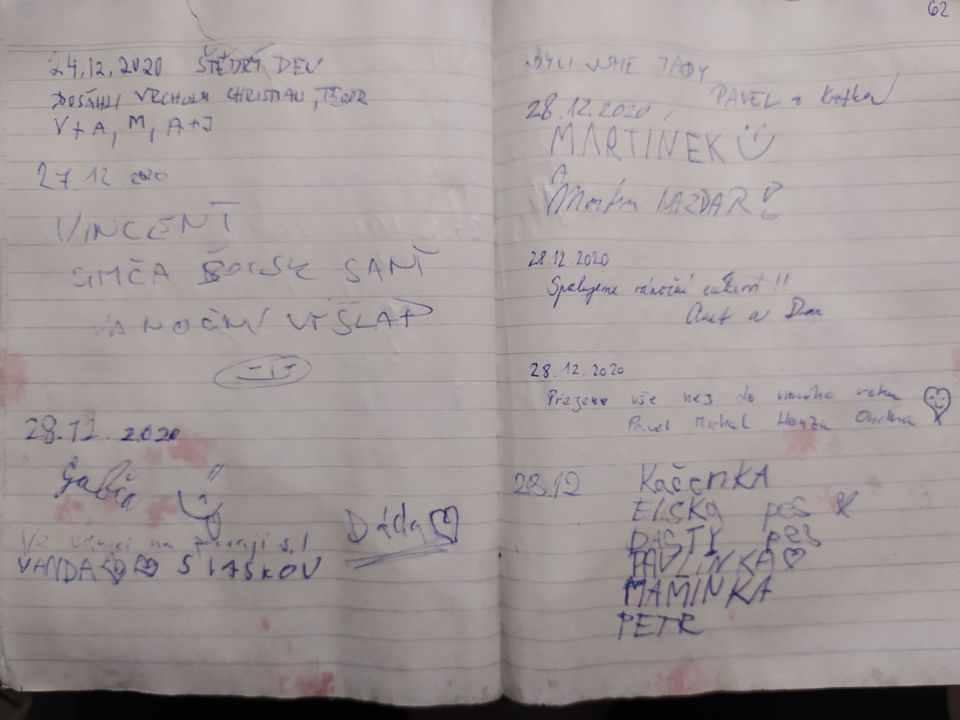 24.12.2020 ŠTĚDRÝ DEN
DOSÁHLI VRCHOLU CHRISTIAN, TEODR
V+A, M, A+J
27.12.2020
VINCENT
SIMČA SANT
VANOČNÍ VÝŠLAP
28.12.2020
Gabča
Dáda
VANDA S LÁSKOU
62
BYLI JSME TADY
PAVEL a Katka
28.12.2020
MARTÍNEK
A
Martin NAZDAR!
28.12.2020
Spalujeme vánoční cukroví !!
Anet a Dan
28.12.2020
Přejeme vše nej do nového roku
Pavel Michal Honza Ondra
28.12 KAČENKA
ELISKA pes
DASTY pes
PAVLÍNKA
MAMINKA
PETR